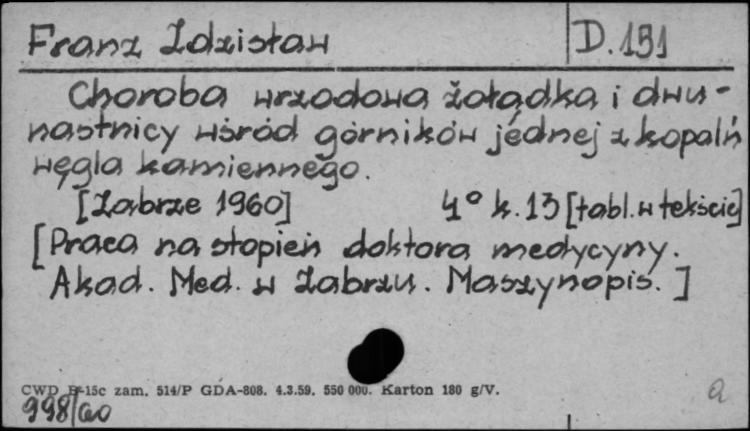 Franz Zdzisław D.191
Choroba wrzodowa żołądka i dwu-
nastnicy wśród górników jednej z kopalń
węgla kamiennego.
[Zabrze 1960] 4° k.13 [tabl. w tekście]
[Praca na stopień doktora medycyny.
Akad. Med. w Zabrzu. Maszynopis.]
CWD B-15c zam. 514/P GDA-808. 4.3.59. 550 000. Karton 180 g/V.
998/60 a